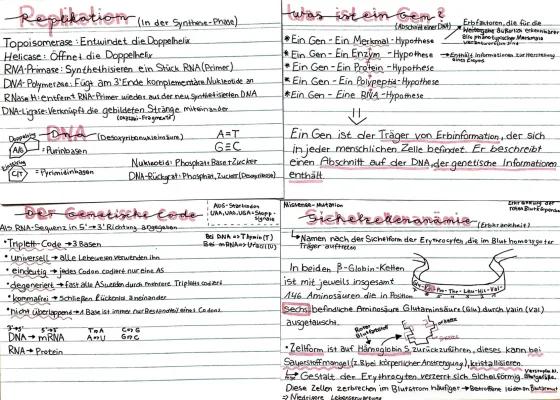 Replikation (In der Synthese-Phase)
Topoisomerase: Entwindet die Doppelhelix
Helicase: Öffnet die Doppelhelix
RNA-Primase: Synthethisieren ein Stück RNA (Primer)
DNA-Polymerase: Fügt am 3'Ende komplementäre Nukleotide an
RNase H: entfernt RNA-Primer wieder aus der neu synthetisierten DNA
DNA-Ligase: Verknüpft die gebildeten Stränge miteinander
(Okazaki-Fragmente)
DNA (Desoxyribonukleinsäure)
A=T
G≡C
A/G = Purinbasen
C/T = Pyrimidinbasen
Nukleotid: Phosphat+Base+Zucker
DNA-Rückgrat: Phosphat, Zucker (Desoxyribose)
Was ist ein Gen?
(Abschnitt einer DNA)
Erbfaktoren, die für die
*Ein Gen - Ein Merkmal-Hypothese
*Ein Gen - Ein Enzym - Hypothese
*Ein Gen - Ein Protein - Hypothese
*Ein Gen - Ein Polypeptid-Hypothese
*Ein Gen - Eine RNA - Hypothese
Ein Gen ist der Träger von Erbinformation, der sich
in jeder menschlichen Zelle befindet. Er beschreibt
einen Abschnitt auf der DNA, der genetische Informationen
enthält.
Der Genetische Code
AUG-Startcodon
UAA, UAG, UGA = Stopp-
signale
Als RNA-Sequenz in 5'→3' Richtung angegeben
Bei DNA => Thymin (T)
Bei mRNA => Uracil (U)
*Triplett-Code → 3 Basen
*universell → alle Lebewesen verwenden ihn
*eindeutig → jedes Codon codiert nur eine AS
*degeneriert → fast alle AS wurden durch mehrere Tripletts codiert
*kommafrei → Schließen lückenlos aneinander
*nicht überlappend → 1 Base ist immer nur Bestandteil eines Codons
DNA → mRNA
RNA → Protein
Missense-Mutation
Sichelzellenanämie (Erbkrankheit)
Erkrankung der
roten Blutkörperchen
↳ Namen nach der Sichelform der Erythrocyten, die im Blut homozygoter
Träger auftreten
In beiden β-Globin-Ketten
ist mit jeweils insgesamt
146 Aminosäuren die in Position
sechs befindliche Aminosäure Glutaminsäure (Glu) durch Valin (Val)
ausgetauscht.
Roter
Blutfarbstoff
*Zellform ist auf Hämoglobin S zurückzuführen, dieses kann bei
Sauerstoffmangel (z.B bei körperlicher Anstrengung) kristallisieren.
↳ Gestalt der Erythrocyten verzerrt sich sichelförmig.
Diese Zellen zerbrechen im Blutstrom häufiger → Betroffene leiden an Blutarmut
=> Niedrigere Lebenserwartung